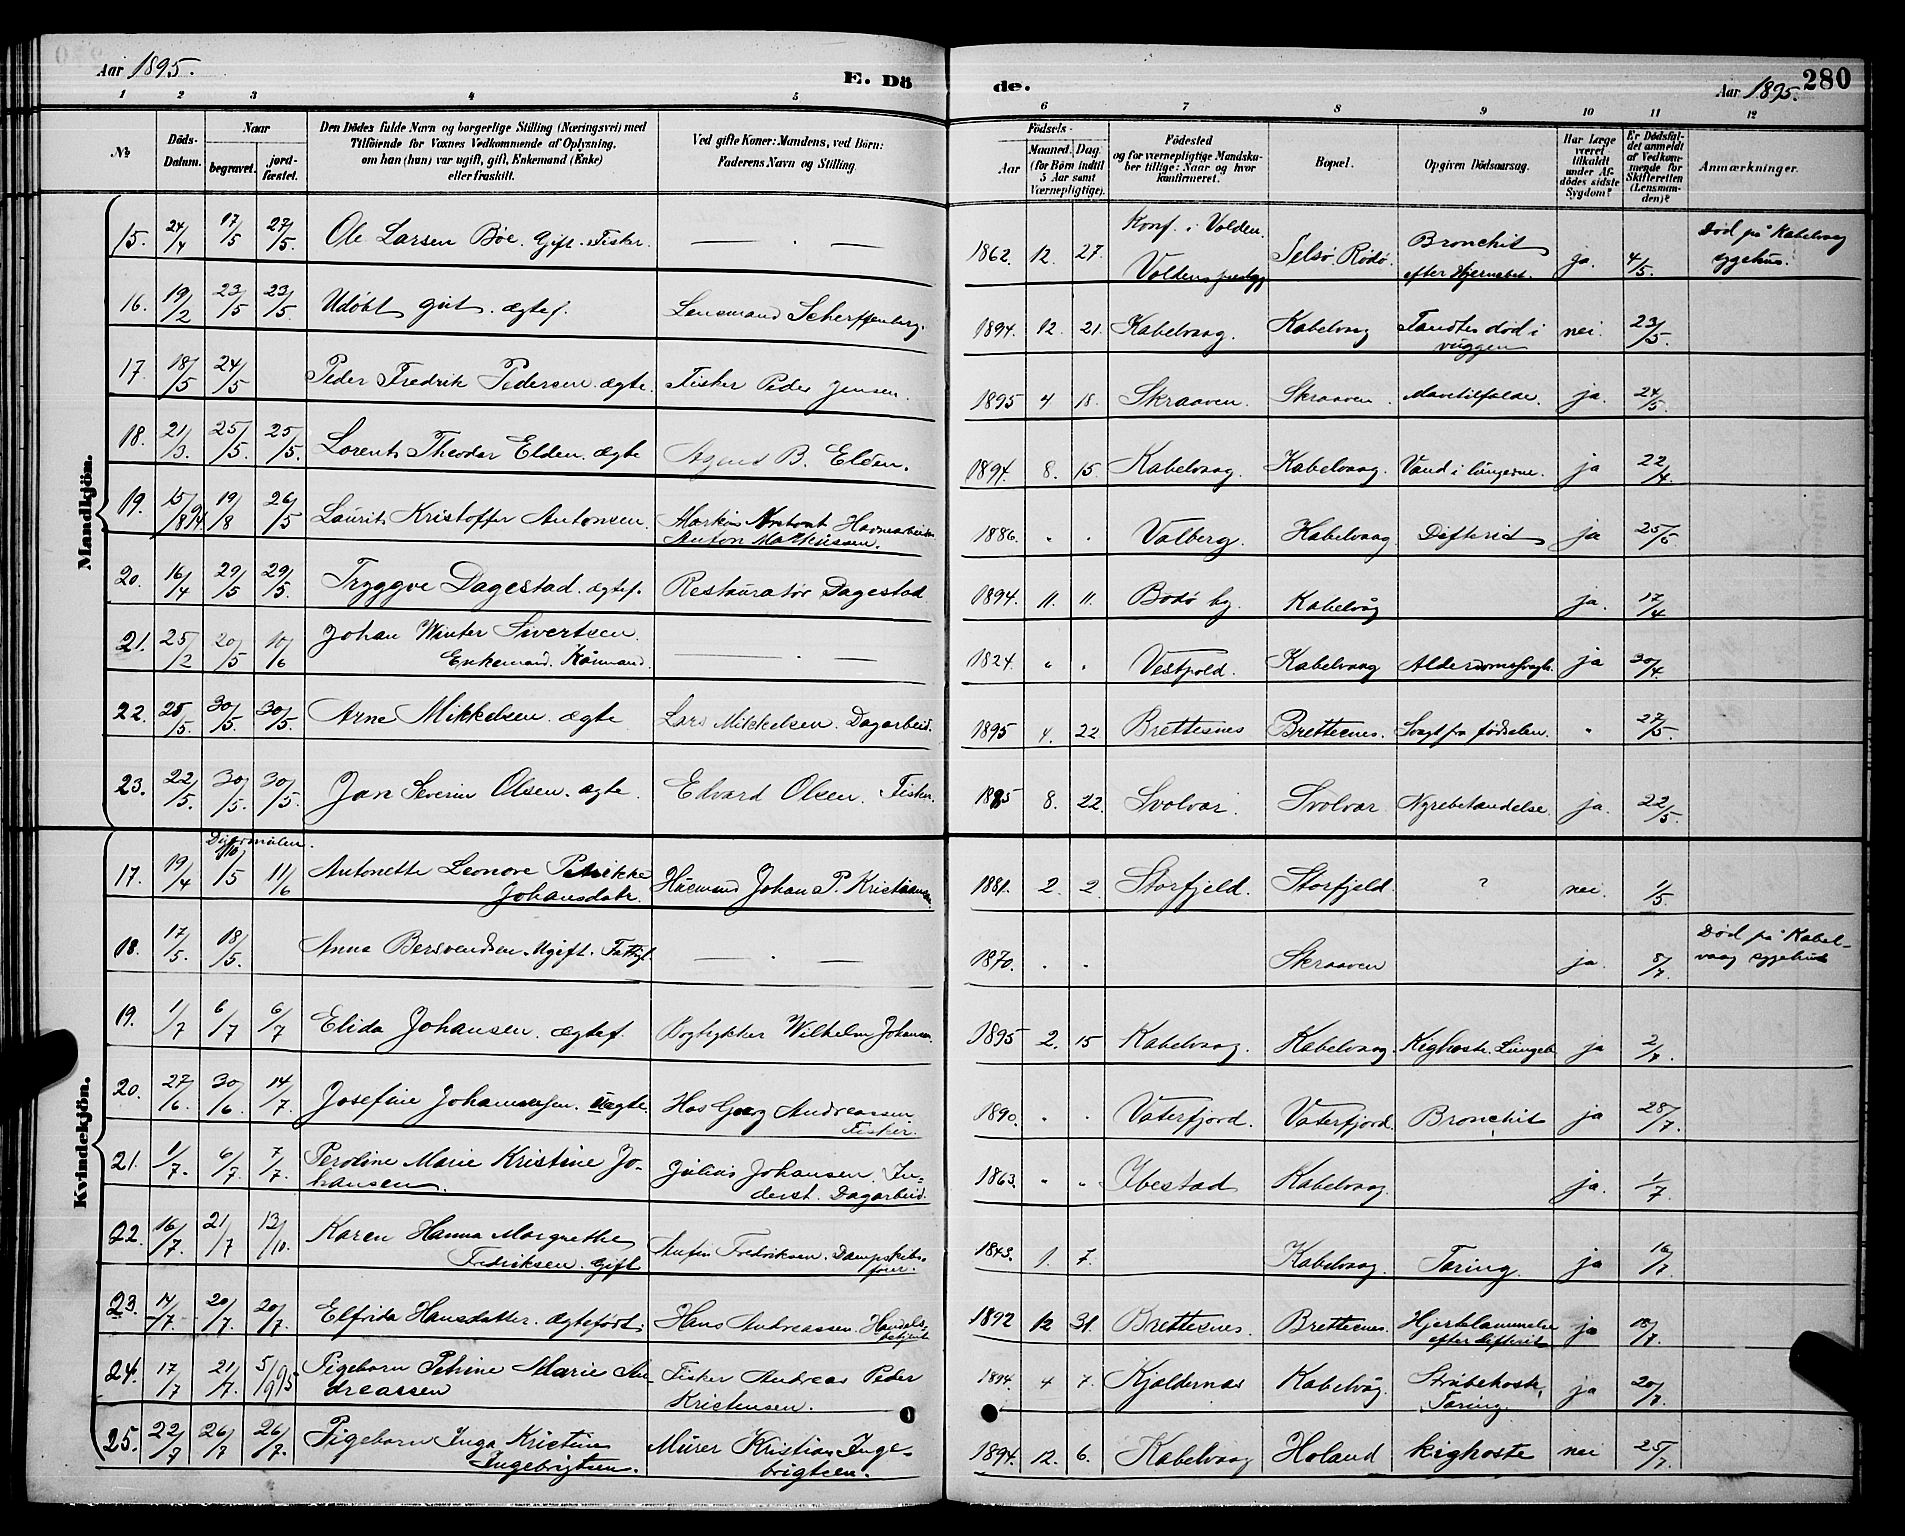 Aar 1895.
E. Dö
de.
Aar 1895.
280
1 2 3 4 5 6 7 8 9 10 11 12
№
Døds-Datum.
Naar
begravet.
jord-fæstet.
Den Dödes fulde Navn og borgerlige Stilling (Næringsvei) med
Tilföiende for Voxnes Vedkommende af Oplysning,
om han (hun) var ugift, gift, Enkemand (Enke)
eller fraskilt.
Ved gifte Koner: Mandens, ved Börn:
Faderens Navn og Stilling.
Födsels-
Aar
Maaned. Dag.
(for Börn indtil
5 Aar samt
Værnepligtige).
Födested
og for værnepligtige Mandska-
ber tillige: Naar og hvor
konfirmeret.
Bopæl.
Opgiven Dödsaarsag.
Har Læge
været
tilkaldt
under Af-
dödes sidste
Sygdom?
Er Dödsfal-
det anmeldt
af Vedkom-
mende for
Skifteretten
(Lensman-
den)?
Anmærkninger.
Mandkjön.
15. 24/4 17/5 27/5 Ole Larsen Böe. Gift. Fisker. — . — 1862. 12. 27. Konf. i Volden. Voldens Selsø Rödö. Bronchit efter ja. 4/5. Död på Kabelvaag sygehus.
16. 19/2 23/5 23/5. Udöbt gut. ægtef. Lensmand Scherffenberg. 1894. 12. 21. Kabelvaag. Kabelvaag Fandtes död i vuggen nei. 23/5.
17. 18/5 24/5 Peder Fredrik Pedersen. ægte. Fisker Peder Jensen. 1895 4 18. Skraaven. Skraaven. Mavetilfælde. ja. 24/5.
18. 21/3. 25/5. 25/5. Lorents Theodor Elden. ægte B. Elden. 1894. 8. 15. Kabelvaag. Kabelvaag. Vand i lungerne. ja 22/4.
19. 15/8 94. 19/8 26/5 Laurits Kristoffer Antonsen. Anton Markussen. 1886. " " Valberg. Kabelvaag. Difterit ja 25/5
20. 16/4 29/5 29/5. Tryggve Dagestad. ægtef. Restauratör Dagestad 1894. 11. 11. Bodö by. Kabelvåg ja. 17/4
21. 25/2 20/5 10/6 Johan Winter Sivertsen. Enkemand. — . — 1824. " " Kabelvaag ja 30/4
22. 25/5. 30/5. 30/5. Arne Mikkelsen. ægte Lars Mikkelsen. Dagarbeid. 1895 4. 22 Brettesnes Brettesnes. Svagt fra födselen. " 27/5.
23. 22/5. 30/5. 30/5. Jan Severin Olsen. ægte. Edvard Olsen. Fisker. 1885 8. 22. Svolvær. Svolvær. Nyrebetændelse. ja. 22/5.
Kvindekjön.
17. 19/4 1/5 11/6 Antonette Leonore Petrikke Johansdatr. Husmand Johan P. Kristiansen. 1881. 2. 2. Storfjeld. Storfjeld. ? nei. 1/5
18. 17/5. 18/5. Anna Bersvendsen. Ugift. Fattigl. — . — 1870. " " Skraaven ja. 8/7. Död på Kabel-vaag sygehus
19. 1/7 6/7 6/7 Elida Johansen. ægtef. Bogtykker Wilhelm Johansen. 1895 2. 15 Kabelvaag. Kabelvaag. Kighoste. Lungeb. ja 2/7.
20. 27/6. 30/6. 14/7. Josefine Johannesen. Uægte. Hos Georg Andreassen Fisker. 1890. " " Vaterfjord. Vaterfjord. Bronchit ja 28/7.
21. 1/7. 6/7 7/7 Peroline Marie Kristine Jo-hansen. Julius Johansen. In-derst. Dagarbeid. 1863. " " Ibestad Kabelvaag. ja. 1/7
22. 16/7. 21/7 13/10. Karen Hanna Margrethe Fredriksen. Gift Fredriksen. Dampskibs- 1843. 1. 7. Kabelvaag. Tæring. ja 16/7.
23. 14/7. 20/7. 20/7 Elfrida Hansdatter. ægtefödt. Hans Andreassen. Handels-betjent 1892 12 31. Brettesnes. Brettesnes. Hjertelammelse efter difterit ja 18/7.
24. 17/7 21/7. 5/9 95 Pigebarn Petrine Marie An-dreassen Fisker Andreas Peder Kristensen. 1894. 4 7. Kjeldernæs Kabelvåg. Strubehoste, Tæring. ja 20/7
25. 22/7 26/7 26/7. Pigebarn Inga Kristine Ingebrigtsen. Murer Kristian Inge-brigtsen. 1894. 12. 6. Kabelvaag Holand kighoste nei 25/7.